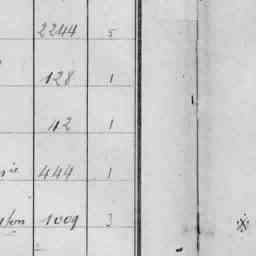 2244 5
128 1
12 1
444 1
1009 3